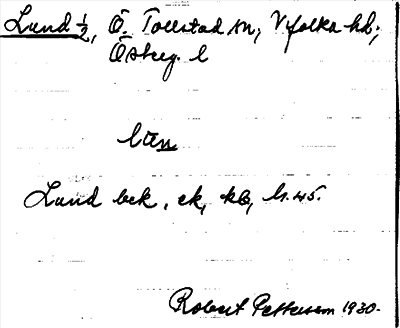 Lund ½, Ö. Tollstad sn, Vifolka hd;
Östrg. l
lŭn
Lund bck, ek, kb, h. 45.
Robert Pettersson 1930.